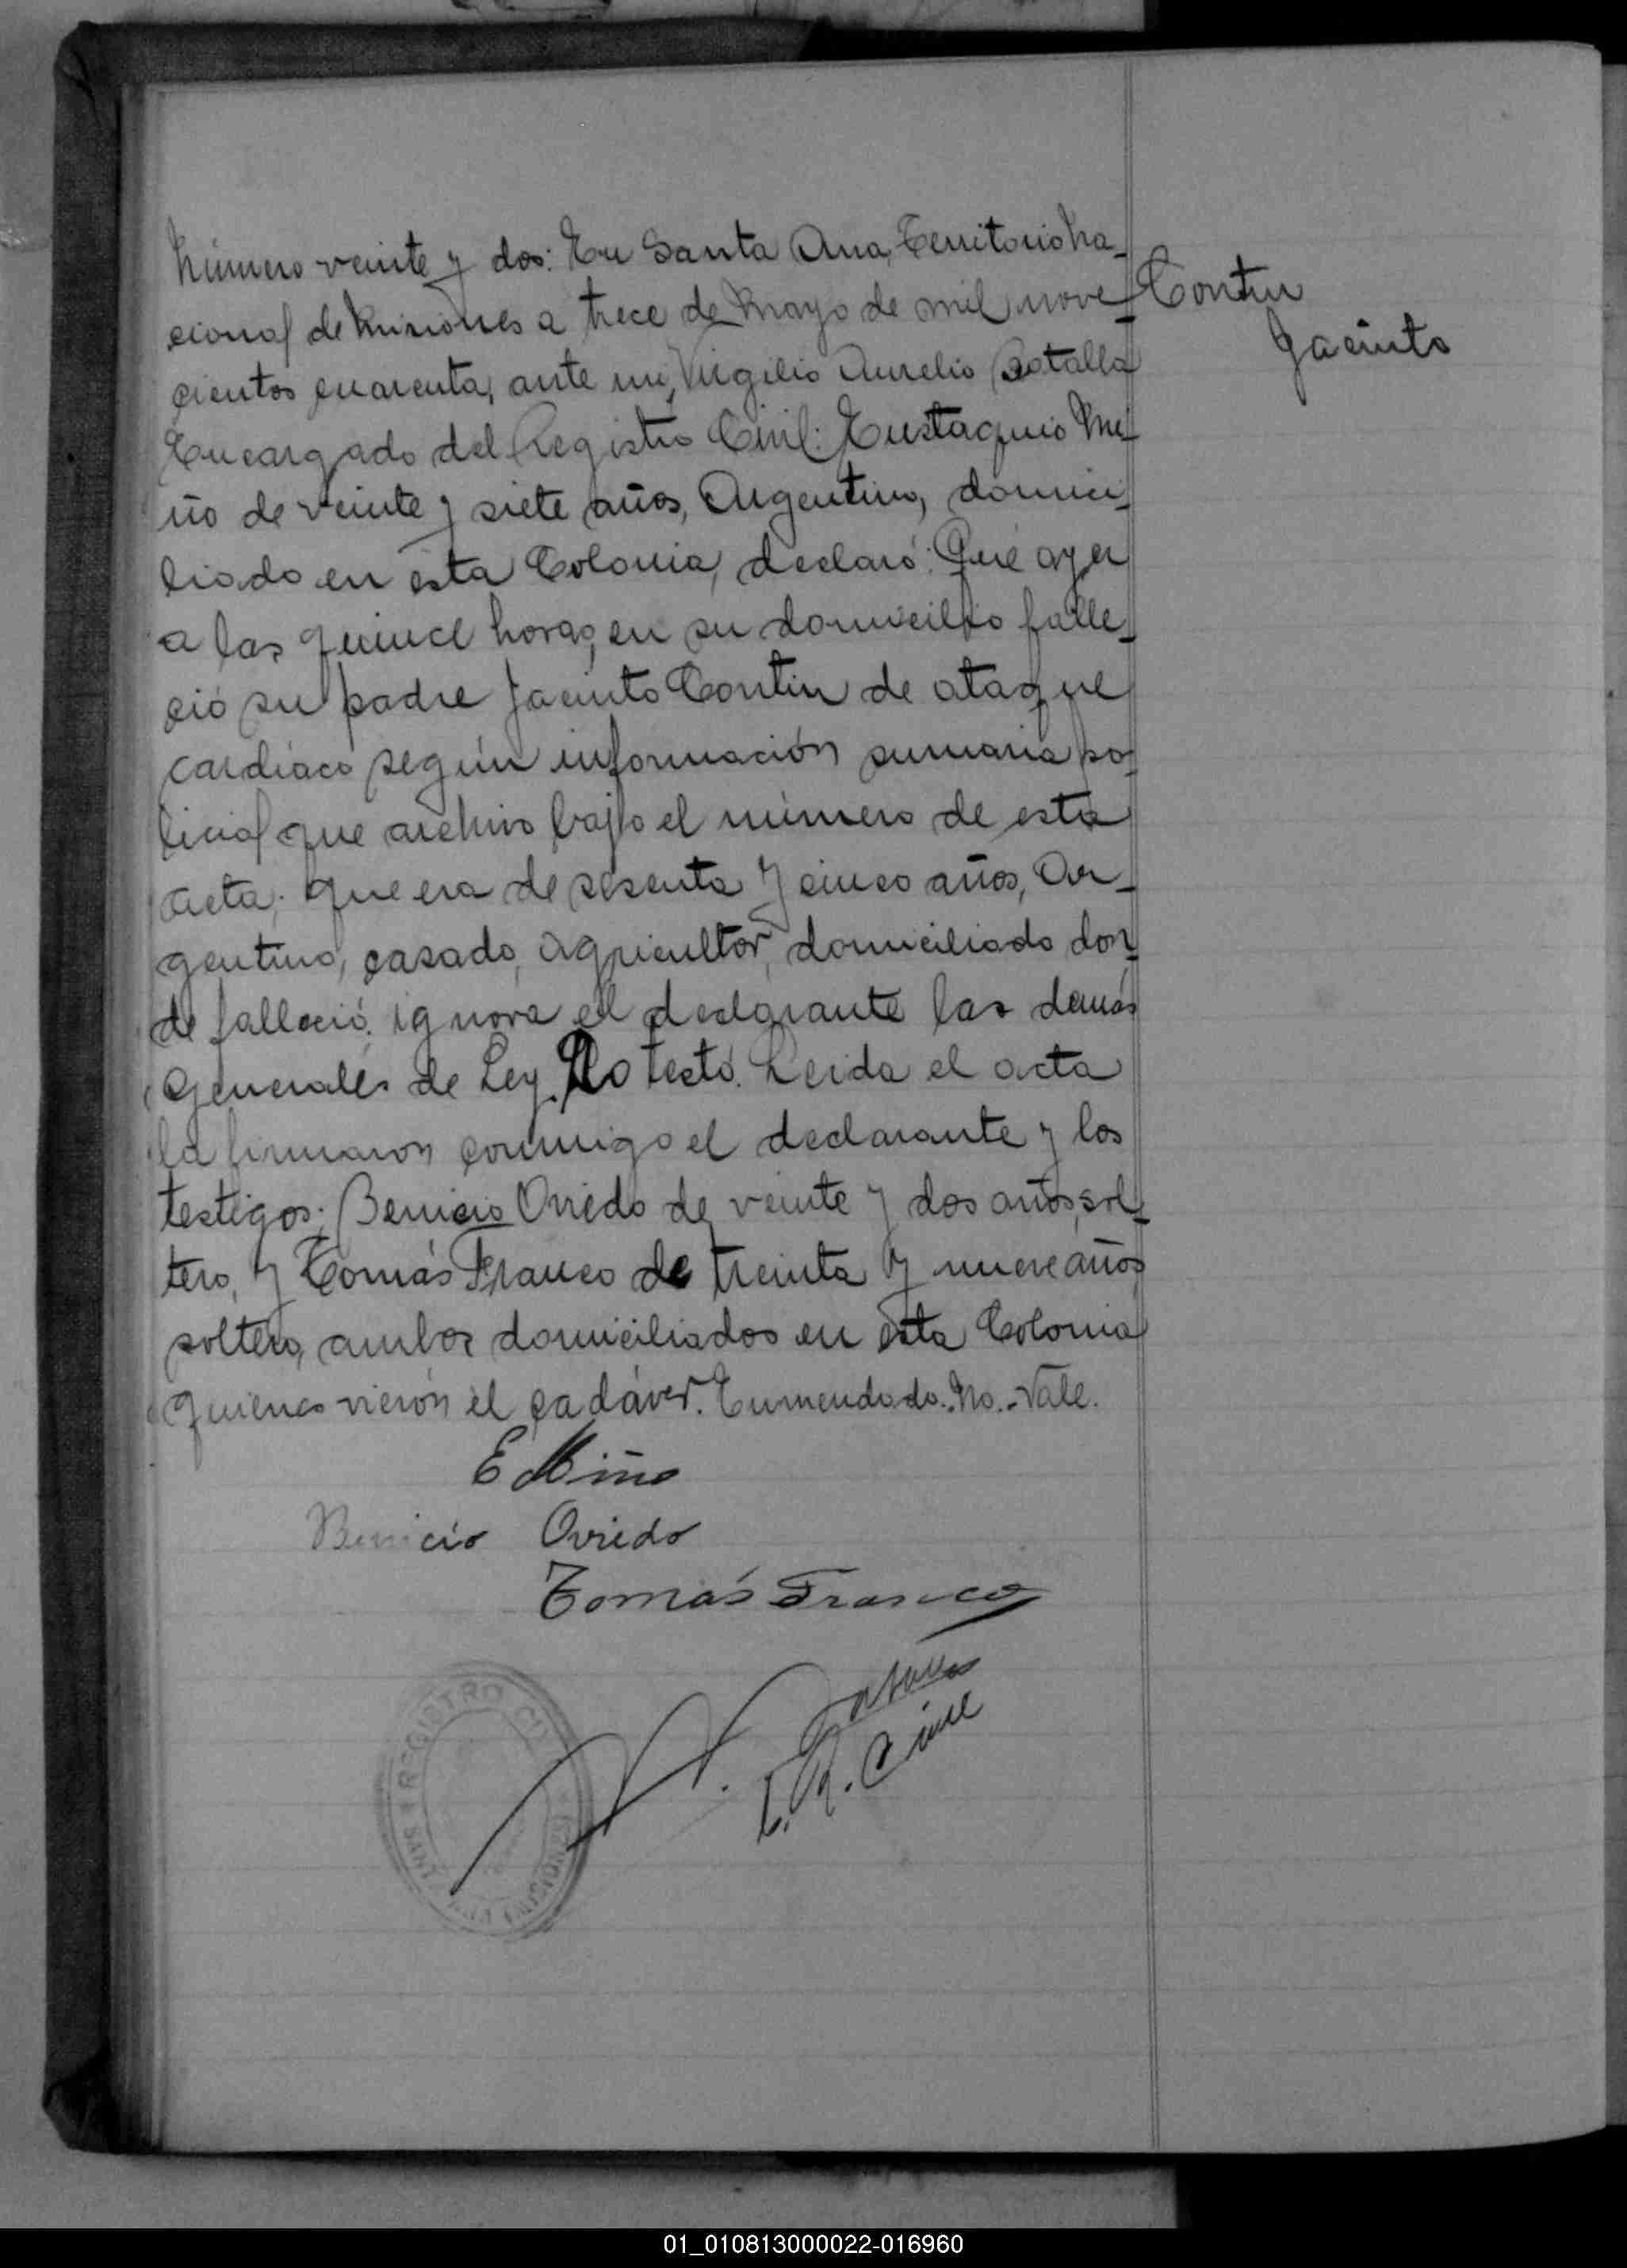 Número veinte y dos: En Santa Ana, Territorio Na-
cional de Misiones a trece de Mayo de mil nove-
cientos cuarenta, ante mi, Virgilio Aurelio Batalla
Encargado del Registro Civil: Eustaquio Mi-
ño de veinte y siete años, Argentino, domici-
liado en esta Colonia, declaró: Que ayer
a las quince horas, en su domicilio falle-
ció su padre Jacinto Contin de ataque
cardíaco según información sumaria po-
licial que archivo bajo el número de esta
acta; que era de sesenta y cinco años, Ar-
gentino, casado, agricultor, domiciliado don-
de falleció, ignora el declarante las demás
generales de Ley. No testó. Leida el acta
la firmaron conmigo el declarante y los
testigos; Benicio Oviedo de veinte y dos años, sol-
tero, y Tomás Franco de treinta y nueve años
soltero, ambos domiciliados en esta Colonia
quienes vieron el cadáver. Enmendado.-No.-Vale.
Contin
Jacinto
E Miño
Benicio Oviedo
Tomás Franco
E. R. Civil
REGISTRO CIVIL
SANTA ANA MISIONES
01_010813000022-016960